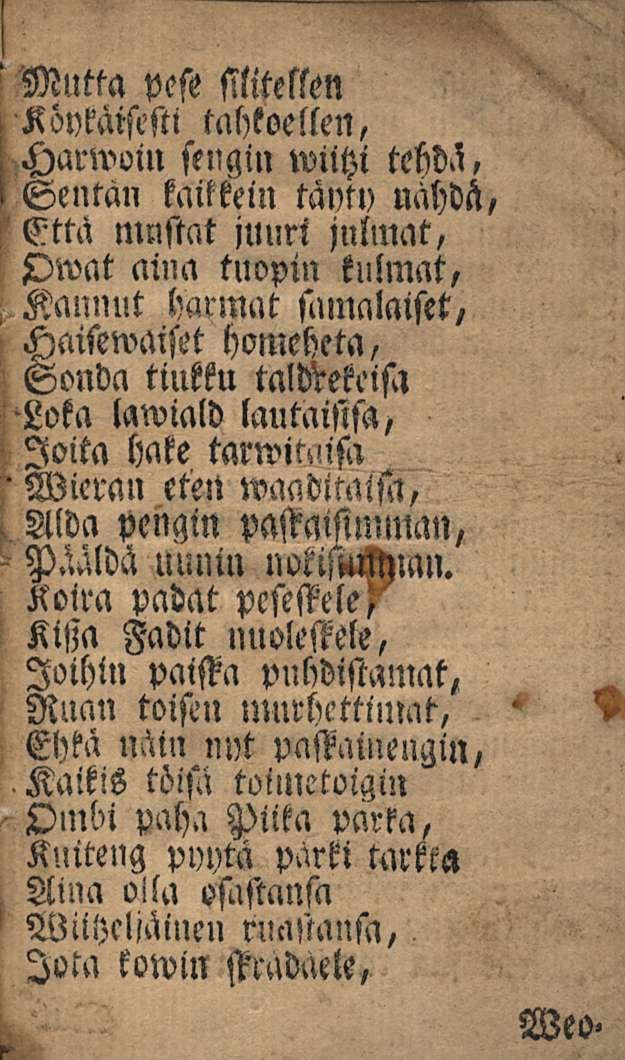 Mutta pese silitellen
Köykäisesti tahkoellen,
Harwoin sengin wiitzi tehdä,
Sentän kaikkein täyty nähdä,
Että mustat juuri julmat,
Owat aina tuopin kulmat,
Kannut harmat samalaiset,
Haisewaiset homeheta,
Sonda tiukku taldrekeisa
Loka lawiald lautaisisa,
Joita hake tarwitaisa
Wieran eten waaditaisa,
Alda pengin paskaisimman,
Pääldä uunin nokisimman.
Koira padat peseskele,
Kißa Fadit nuoleskele,
Joihin paiska puhdistamat,
Ruan toisen murhettimat,
Ehkä näin nyt paskainengin,
Kaikis töisä toimetoigin
Ombi paha Piika parka,
Kuiteng pyytä pärki tarkka
Aina olla osastansa
Wiitzeljäinen ruastansa,
Jota kowin skrädäele,
Weo-